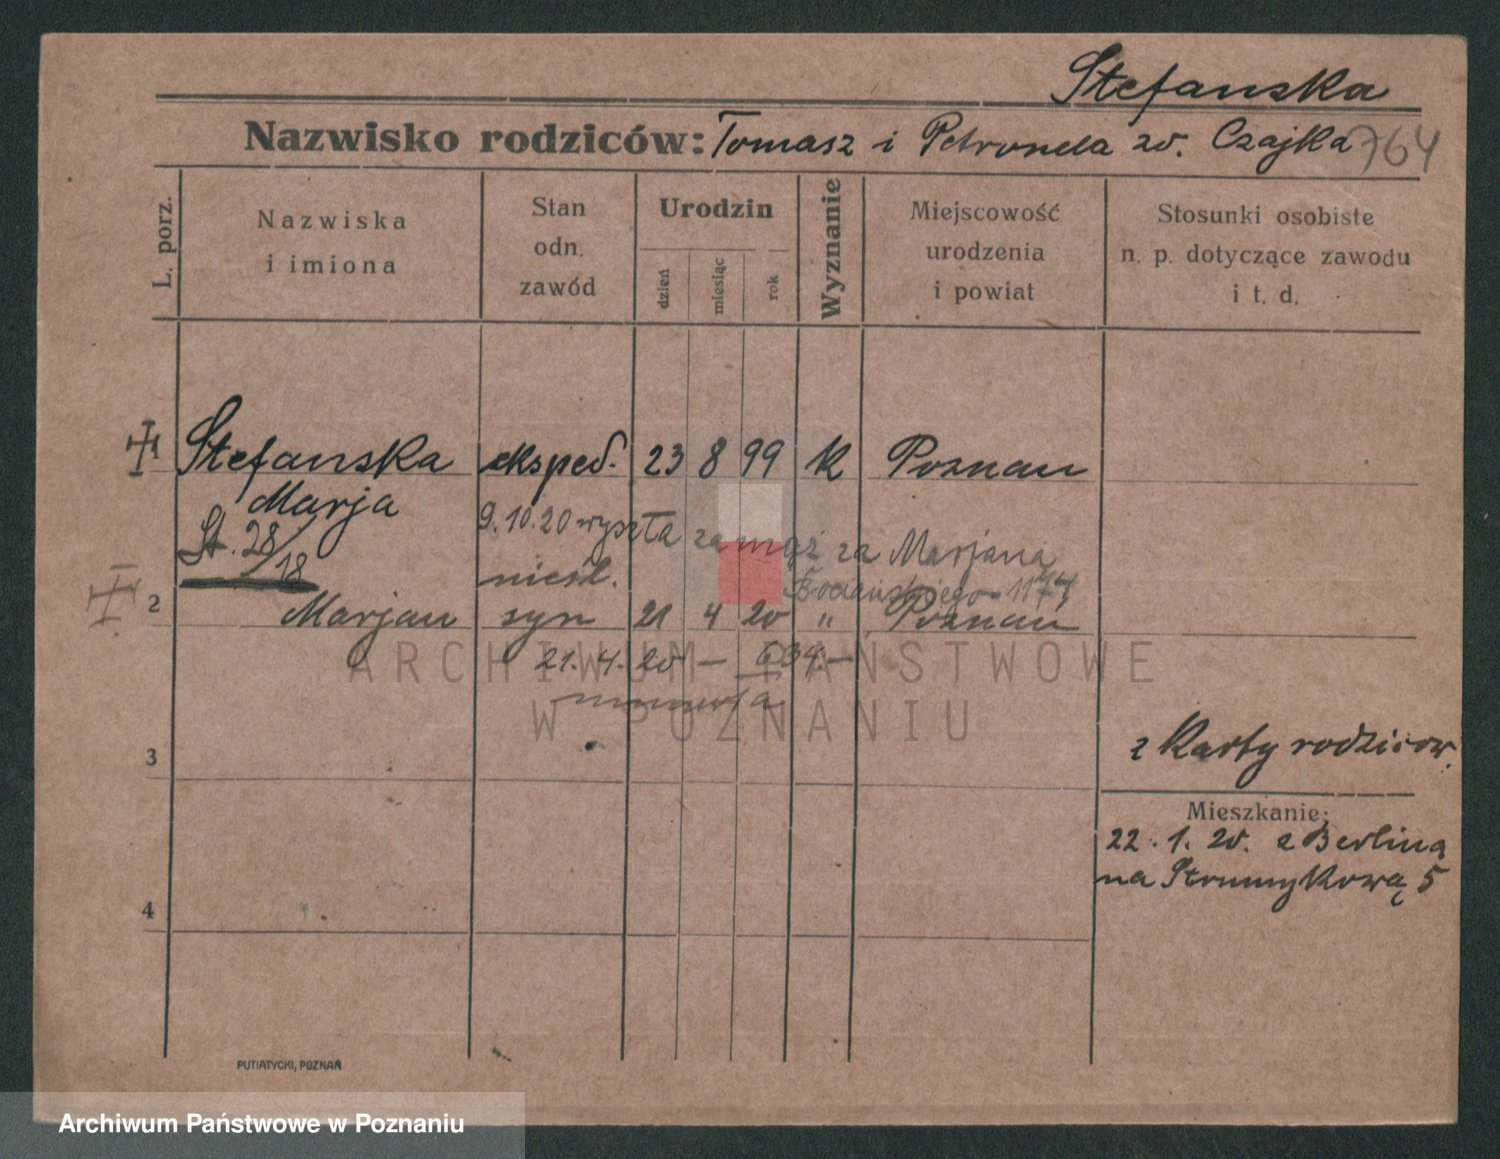 Stefanska
Nazwisko rodziców: Tomasz i Petronela zd. Czajka 764
L. porz.
Nazwiska
i imiona
Stan
odn.
zawód
Urodzin
dzień
miesiąc
rok
Wyznanie
Miejscowość
urodzenia
i powiat
Stosunki osobiste
n. p. dotyczące zawodu
i t. d.
Stefanska eksped. 23 8 99 k Poznan
Marja
St. 28/18
9.10.20 wyszła za mąż za Marjana
nieśl.
1174
2 Marjan syn 21 4 20 " Poznań
21. 4. 20 — 634 —
3
z Karty rodziców.
Mieszkanie:
22. 1. 20. z Berlina
na Strumykową 5
4
PUTIATYCKI, POZNAŃ
ARCHIWUM PAŃSTWOWE
W POZNANIU
Archiwum Państwowe w Poznaniu